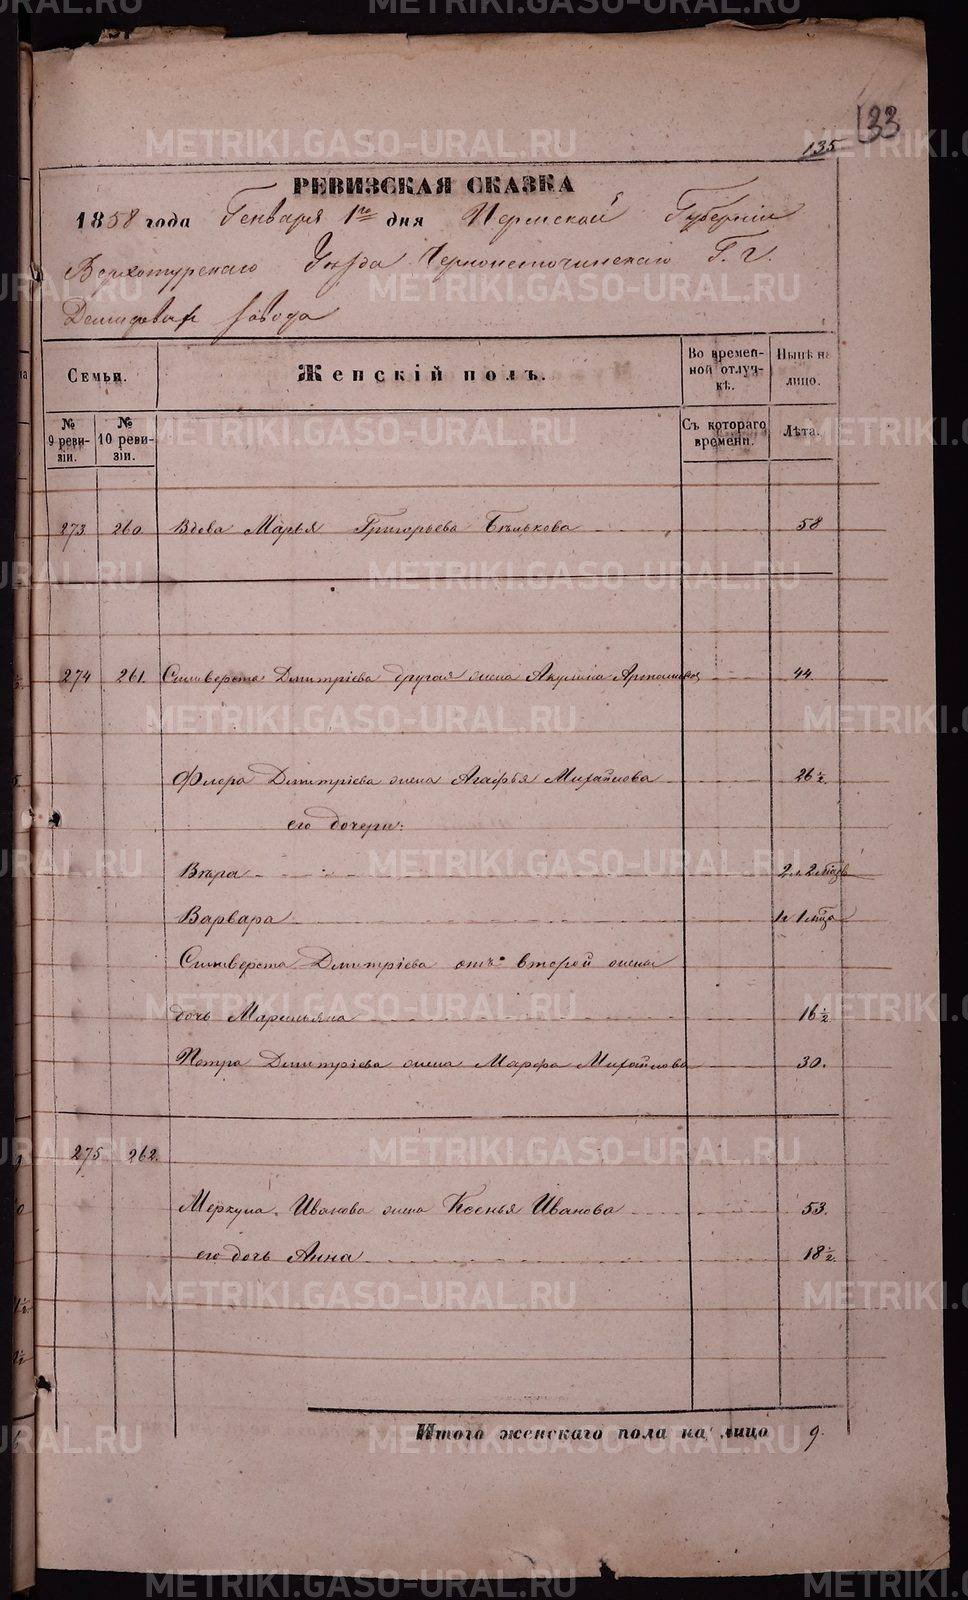 133
135
РЕВИЗСКАЯ СКАЗКА
1858 года Генваря 1го дня Пермской Губернiи
Верхотурскаго Уѣзда Черноисточинскаго Г. г.
Демидовых завода
Семьи.
Женскiй полъ.
Во времен-
ной отлуч-
кѣ.
Нынѣ на
лицо.
№
9 реви-
зiи.
№
10 реви-
зiи.
Съ котораго
времени.
Лѣта.
273 260. Вдова Марья Григорьева Бѣлькова 58
274 261. Сильверста Дмитрiева другая жена Акулина 44.
Флора Дмитрiева жена Агафья Михайлова 26½.
его дочери:
Вѣра 2 л. 2 мѣсяцъ
Варвара 1 г 1 мѣсца
Сильверста Дмитрiева отъ второй жены
дочь Маремьяна 16½
Петра Дмитрiева жена Марфа Михайлова 30.
275 262.
Меркула Иванова жена Ксенья Иванова 53.
его дочь Анна 18½.
Итого женскаго пола на лицо 9.
METRIKI.GASO-URAL.RU